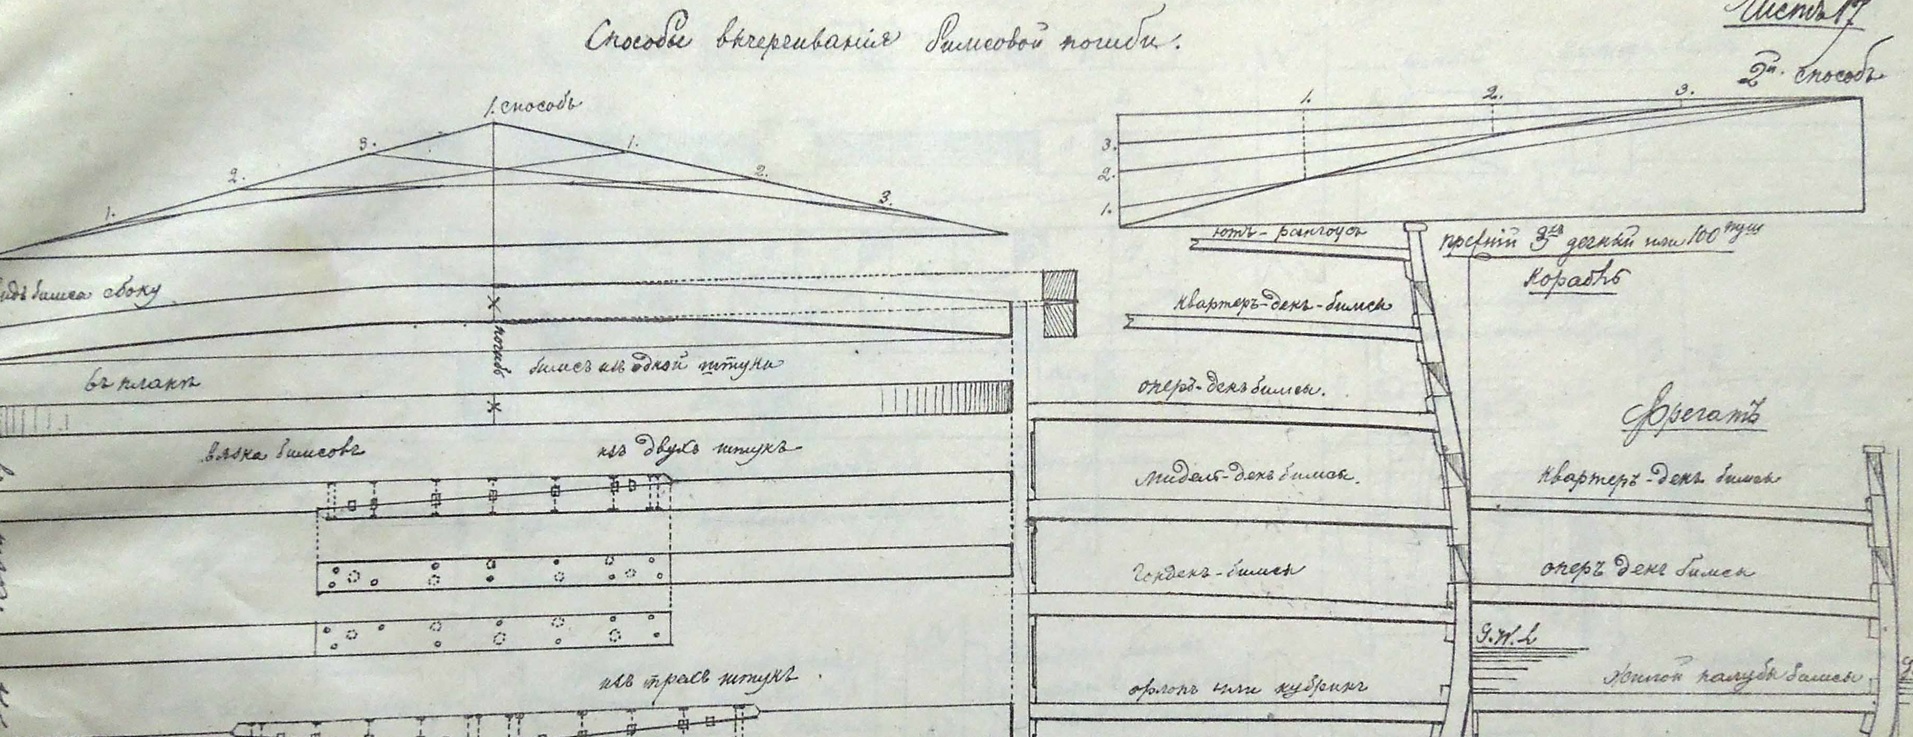 Листъ 17
Способы вычерчиванія бимсовой погиби.
1. способъ
2й. способъ
3. 1.
2. 2.
1. 3.
1. 2. 3.
3.
2.
1.
видъ бимса сбоку
погибь
въ планѣ
бимсъ изъ одной штуки
вязка бимсовъ
изъ двухъ штукъ
изъ трехъ штукъ.
ютъ-
квартеръ-декъ-бимсы
оперъ-декъ бимсы.
мидель-декъ бимсы.
гондекъ-бимсы
орлопъ или кубрикъ
3хъ дечный или 100 пуш
Корабль
Фрегатъ
квартеръ-декъ бимсы
оперъ декъ бимсы
G.W.L
жилой палубы бимсы